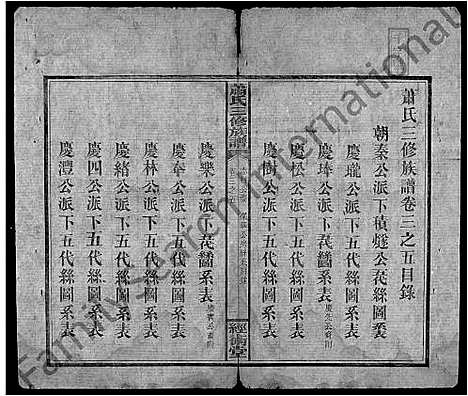 蕭氏三修族譜卷三之五目錄
朝秦公派下積燧公五代絲圖系表
慶瓏公派下五代絲圖系表
慶琫公派下五代齒系表 慶生公派附
慶松公派下五代絲圖系表
慶樹公派下五代絲圖系表
蕭氏三修族譜
經術堂
慶樂公派下五代齒系表
慶奉公派下五代絲圖系表
慶林公派下五代絲圖系表
慶緒公派下五代絲圖系表
慶四公派下五代絲圖系表
慶澧公派下五代絲圖系表
FamilySearch International